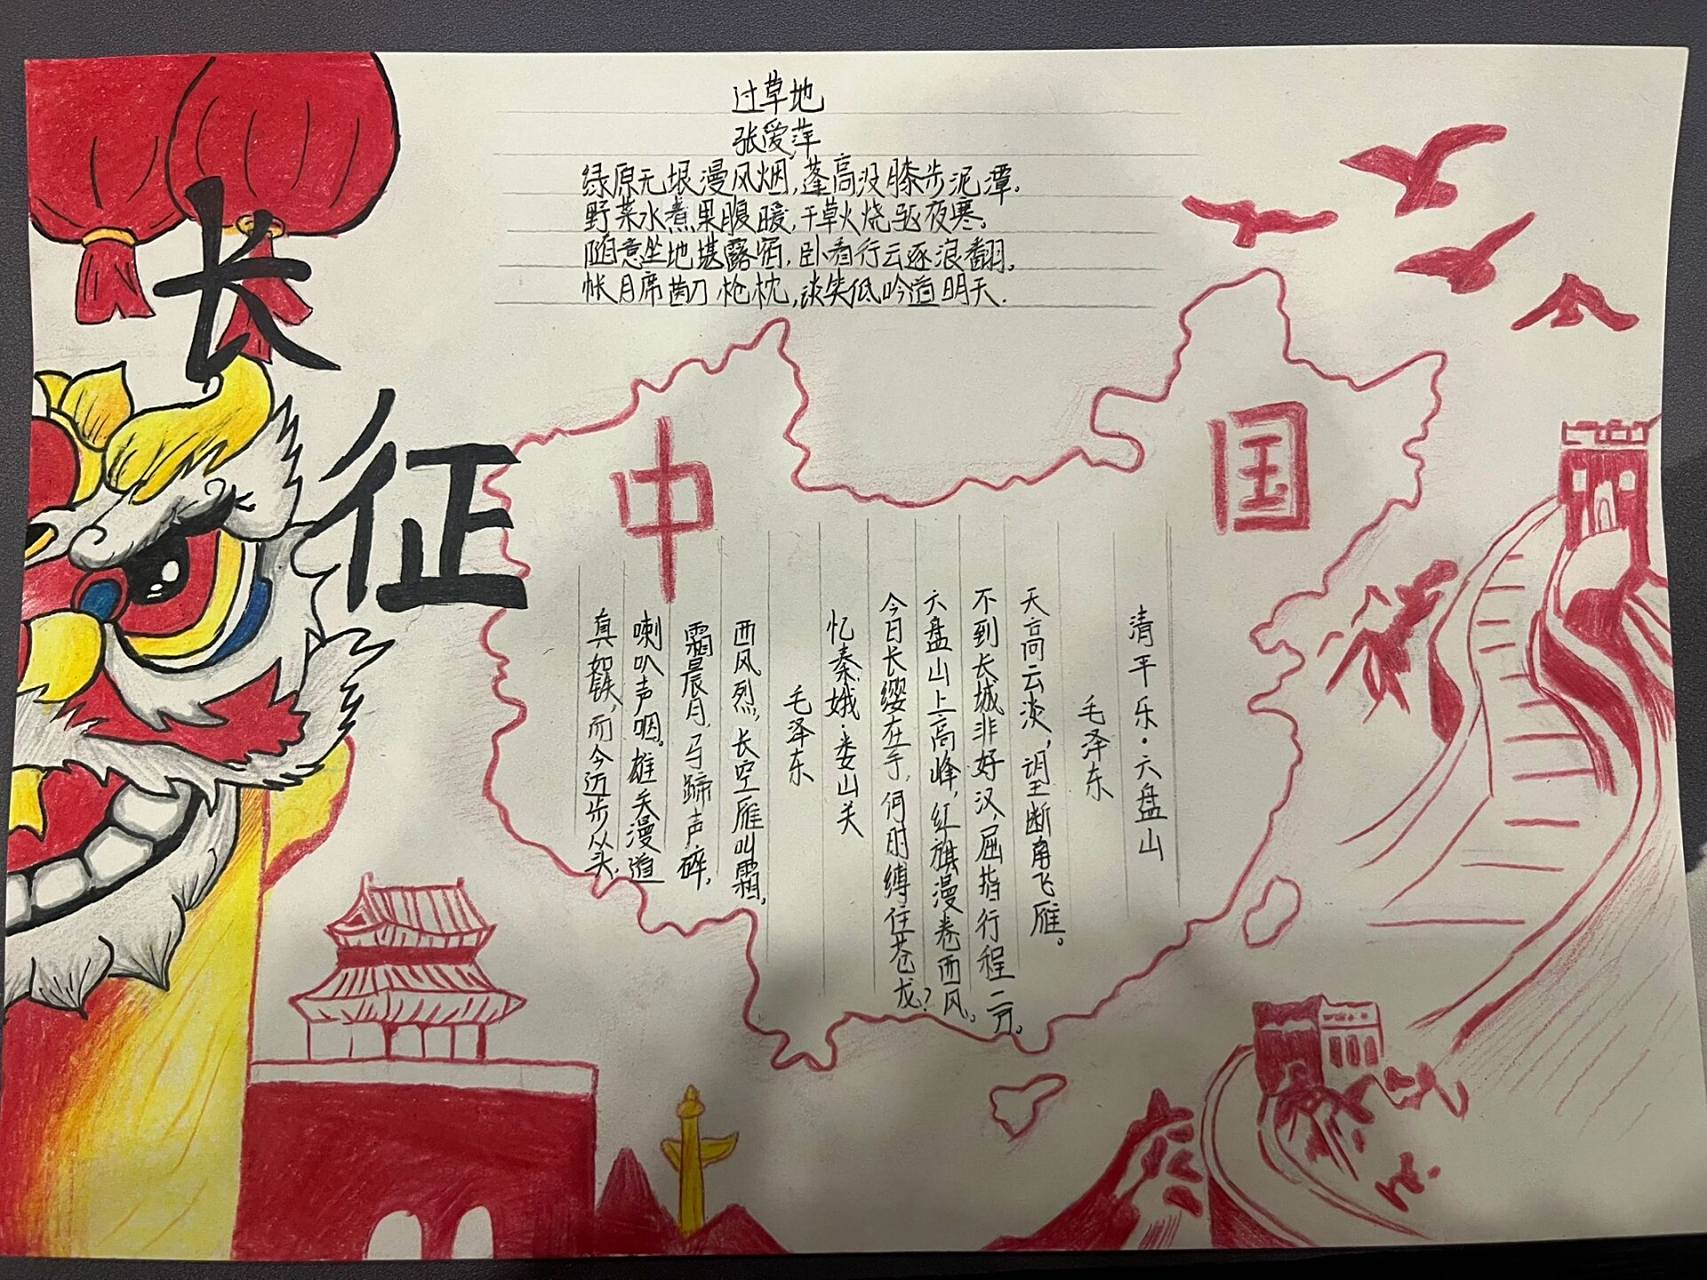 过草地
张爱萍
绿原无垠漫风烟,蓬高没膝步泥潭。
野菜水煮果腹暖,干草火烧驱夜寒。
随意坐地堪露宿,卧看行云逐浪翻。
帐月席茵刀枪枕,谈笑低吟道明天.
长征
中国
清平乐·六盘山
毛泽东
天高云淡,望断南飞雁。
不到长城非好汉,屈指行程二万。
六盘山上高峰,红旗漫卷西风。
今日长缨在手,何时缚住苍龙?
忆秦娥·娄山关
毛泽东
西风烈,长空雁叫霜,
霜晨月,马蹄声碎,
喇叭声咽。雄关漫道
真如铁,而今迈步从头,